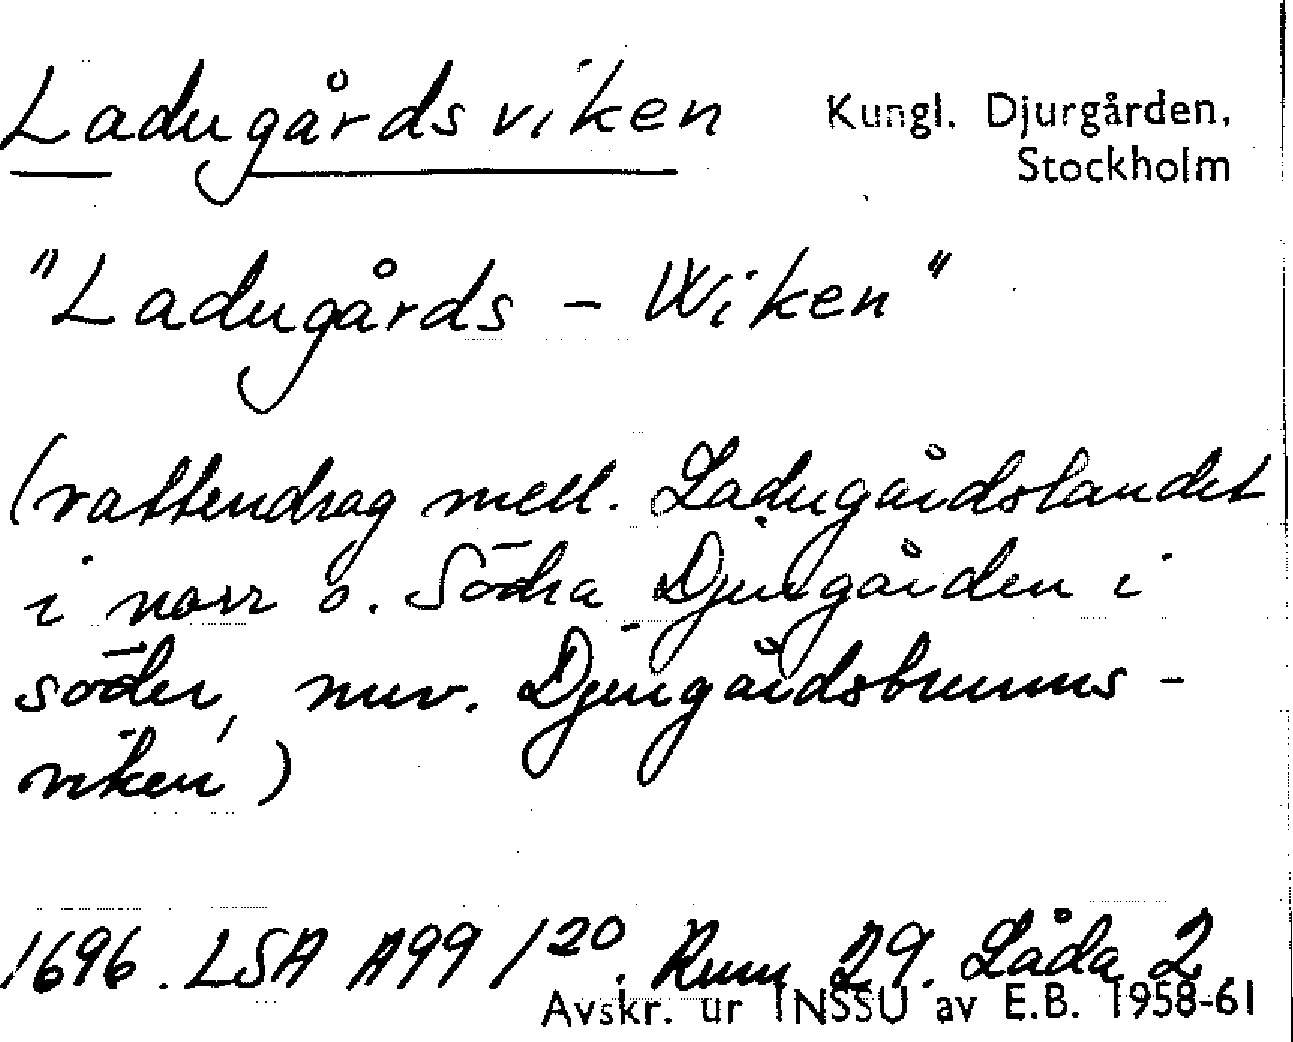 Ladugårdsviken
Kungl. Djurgården,
Stockholm
"Ladugårds - Wiken"
(vattendrag mell. Ladugårdslandet
i norr o. Södra Djurgården i
söder, nuv. Djurgårdsbrunns-
viken)
1696. LSA A99/20. Rum 29. Låda 2
Avskr. ur INSSU av E.B. 1958-61